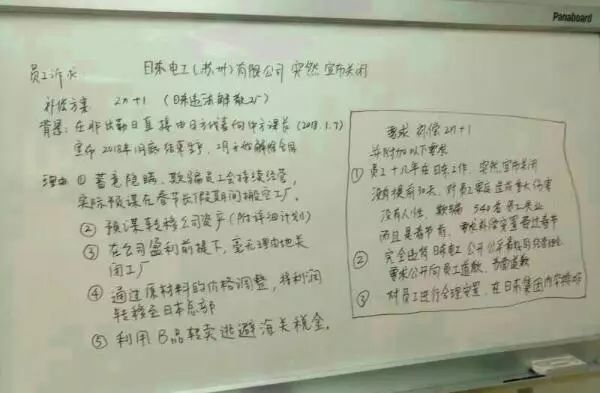 Panaboard
员工诉求 日东电工(苏州)有限公司 突然宣布关闭
补偿方案 2n+1 (日东违法解散工厂)
背景: 在非出勤日直接由日方代表向中方课长(2018.1.7)
宣布2018年1月底结束生产, 2月开始解除合同
理由 ① 蓄意隐瞒、欺骗员工会持续经营,
实际预谋在春节长假期间搬空工厂。
② 预谋转移公司资产(附详细计划)
③ 在公司盈利前提下, 毫无理由地关
闭工厂
④ 通过原材料的价格调整, 将利润
转移至日本总部
⑤ 利用B品转卖逃避海关税金。
要求 补偿 2n+1
并附加以下要求
① 员工十几年在日东工作, 突然宣布关闭
没有提前30天, 对员工家庭造成重大伤害
没有人性, 欺骗 540名员工失业
而且是春节前, 要求
② 完全违背日东电工公开公平
要求公开向员工道歉, 书面道歉
③ 对员工进行合理安置, 在日东集团内